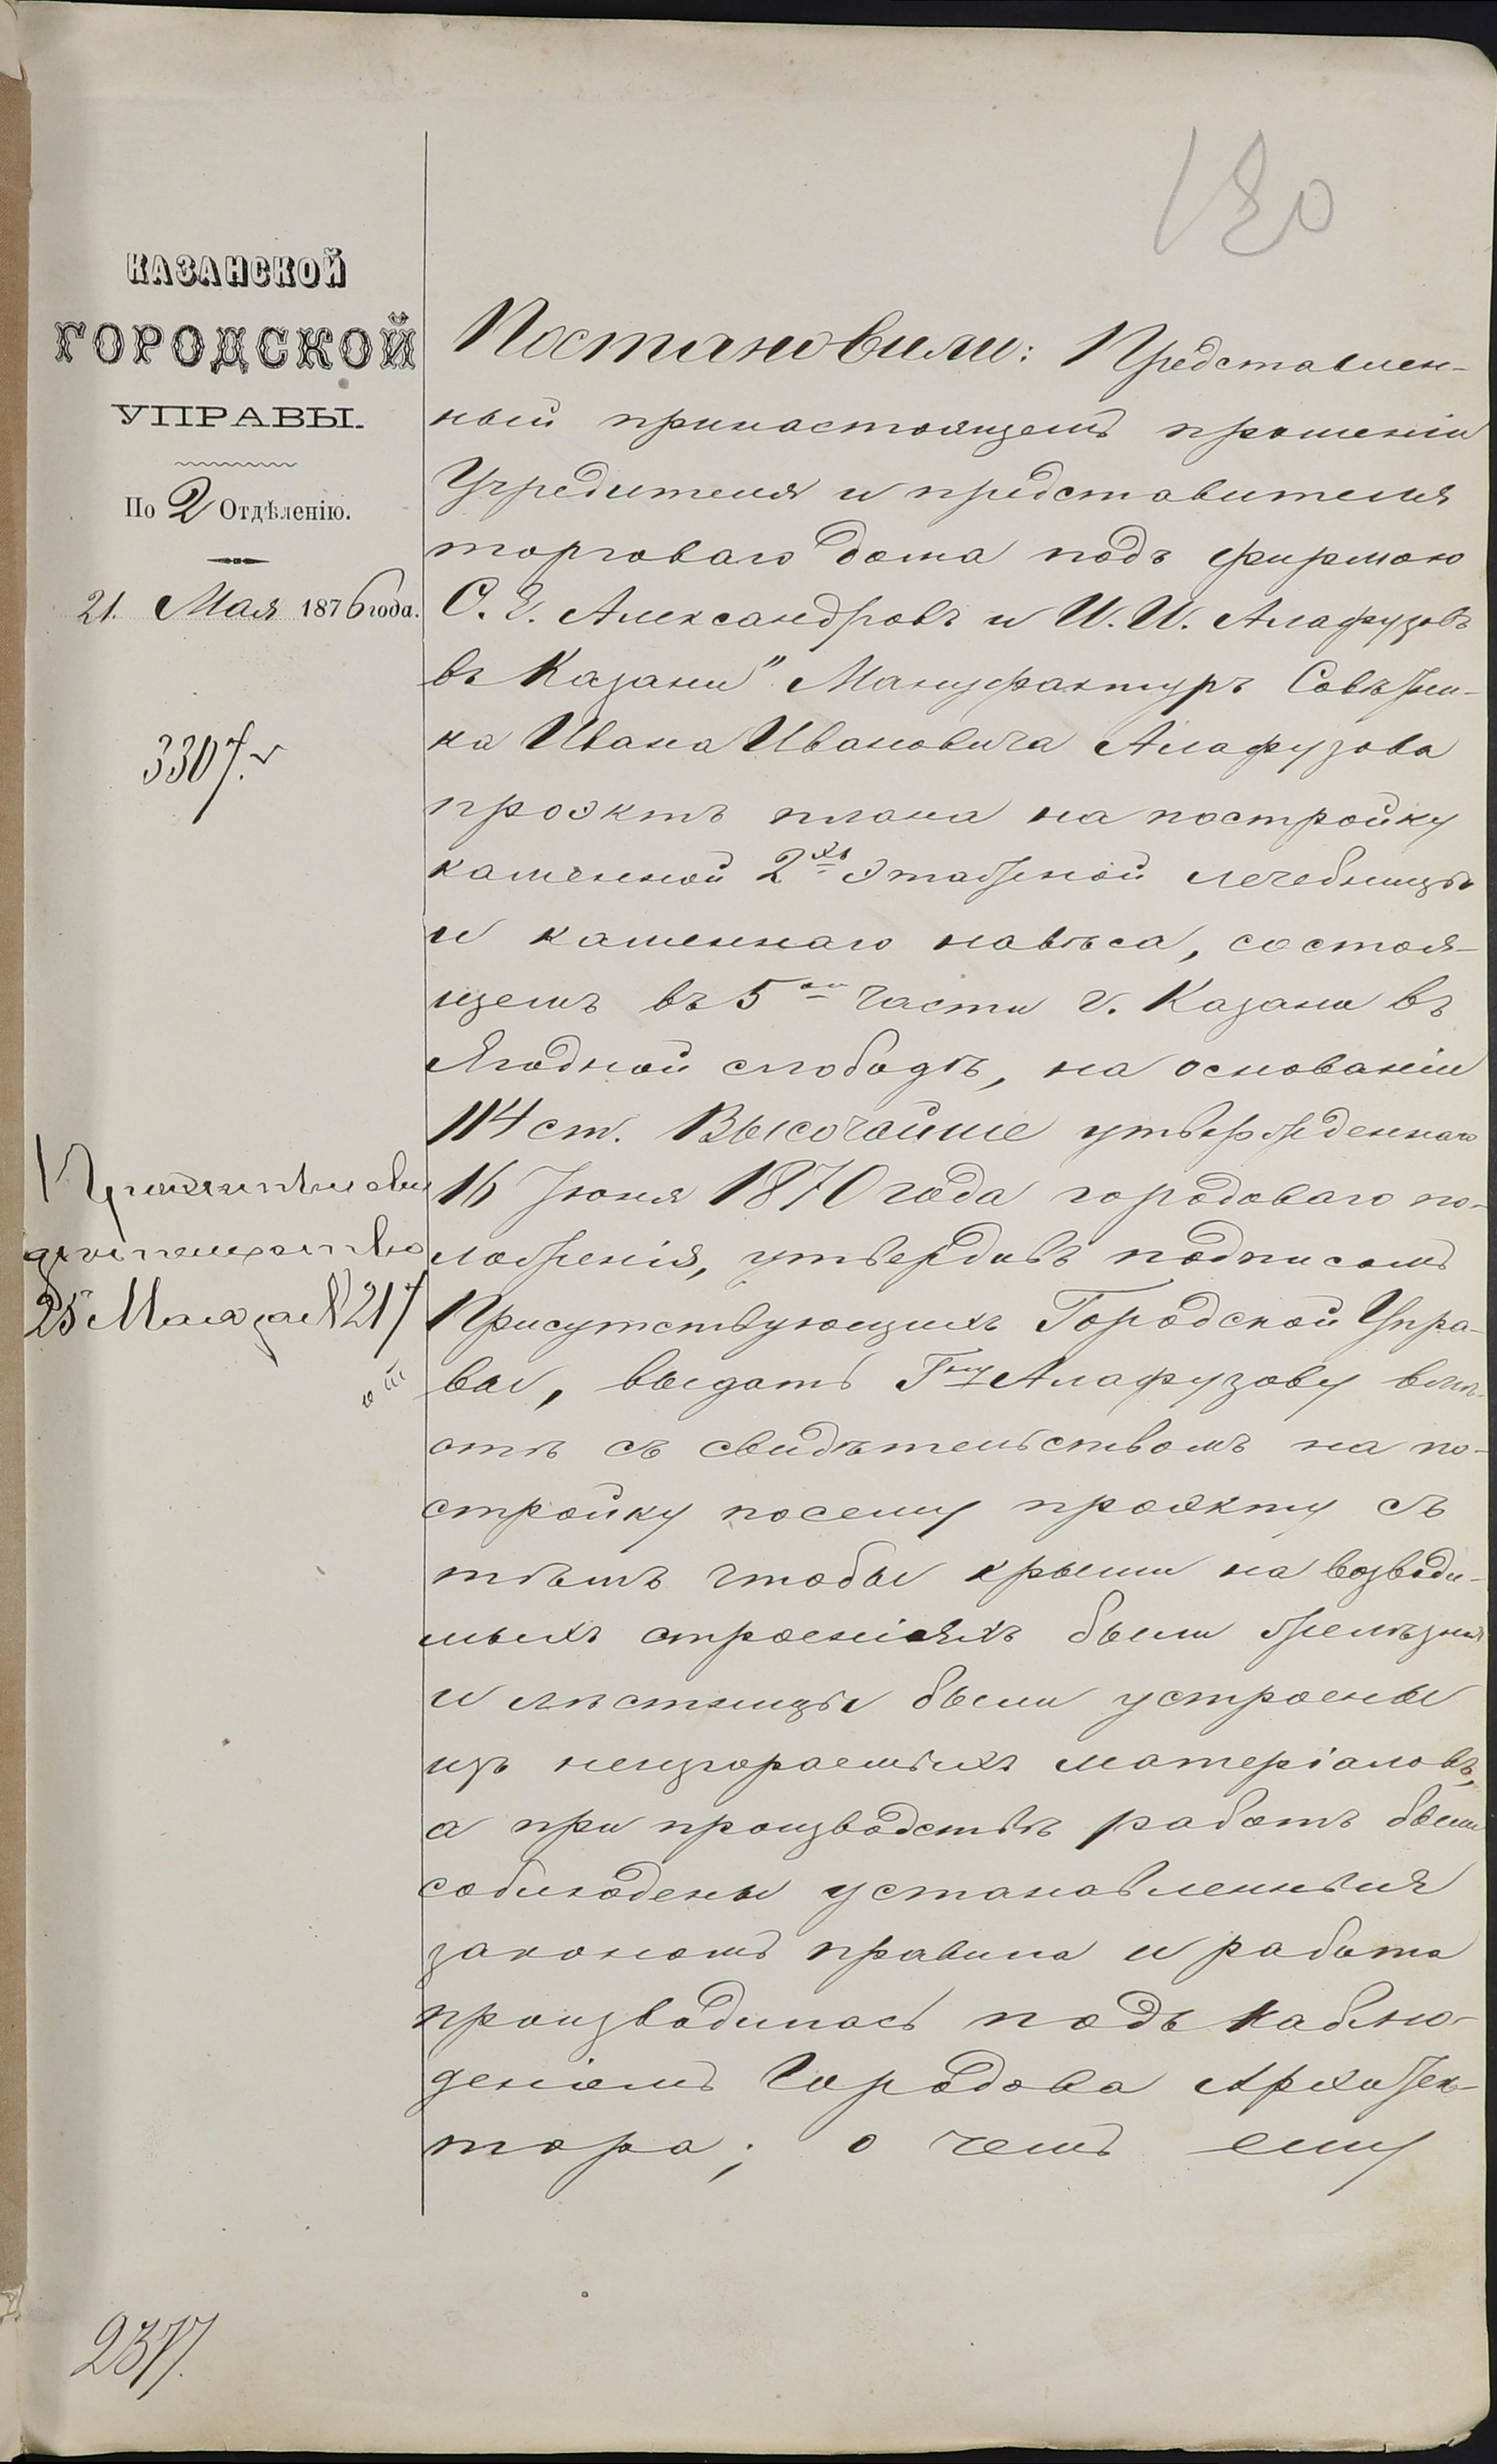 180
КАЗАНСКОЙ
ГОРОДСКОЙ
УПРАВЫ.
По 2 Отдѣленію.
21. Мая 1876 года.
3307.
Постановили: Представлен-
ный принастоящемъ прошеніи
Учредителя и представителя
торговаго дома подъ фирмою
С. Е. Александровъ и И. И. Алафузовъ
въ Казани" Мануфактуръ Совѣтни-
ка Ивана Ивановича Алафузова
проэктъ плана на постройку
каменной 2хъ этажной лечебницы
и каменнаго навѣса, состоя-
щемъ въ 5ой части г. Казани въ
Ягодной слободѣ, на основаніи
114 ст. Высочайше утвержденнаго
16 Іюня 1870 года городоваго по-
ложенія, утвердивъ подписомъ
Присутствующихъ Городской Упра-
вы, выдать Гну Алафузову вмѣ-
стѣ съ свидѣтельствомъ на по-
стройку посему проэкту съ
тѣмъ чтобы крыши на возводи-
мыхъ строеніяхъ были желѣзныя
и лѣстницы были устроены
изъ несгораемыхъ матеріаловъ,
а при производствѣ работъ были
соблюдены установленныя
закономъ правила и работа
производилась подъ наблю-
деніемъ Городова Архитек-
тора; о чемъ ему
25 Мая за № 217
2377.